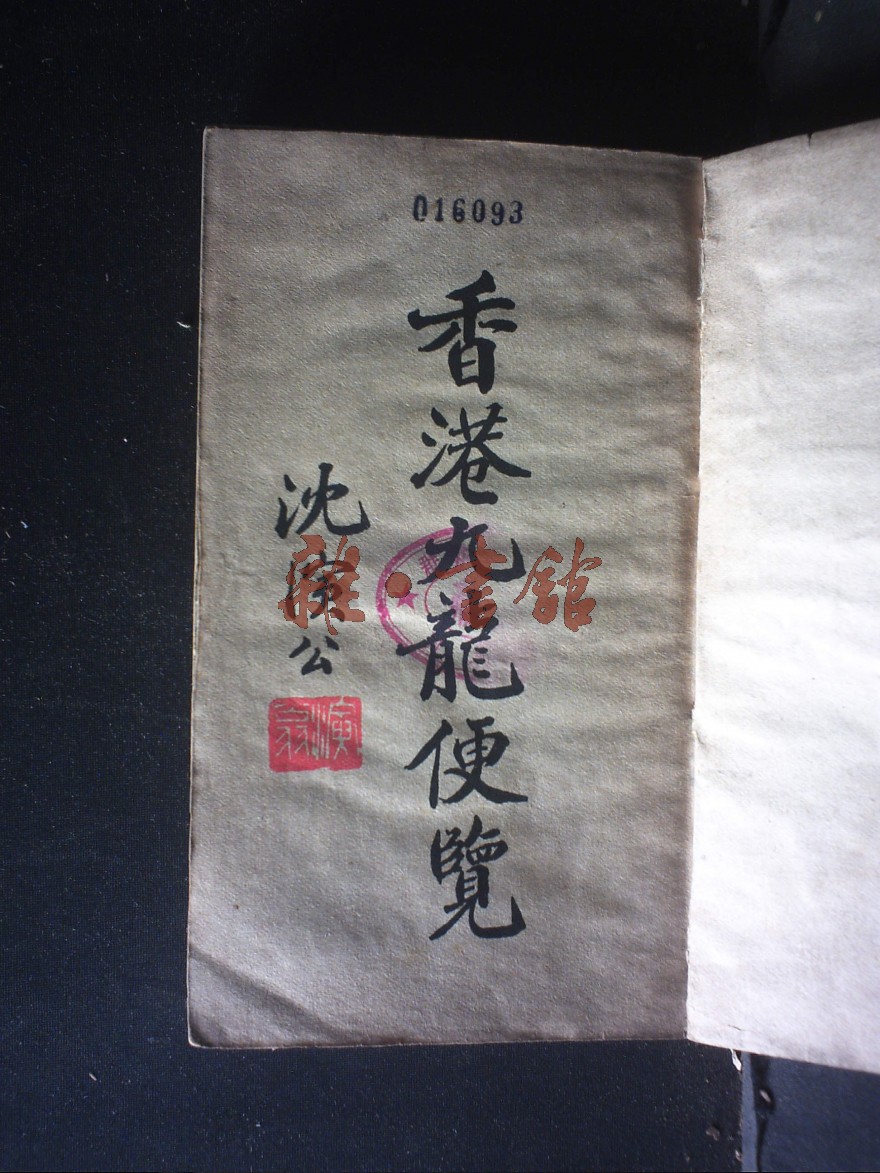 016093
香港九龍便覽
沈演公
演翁
雜·書館